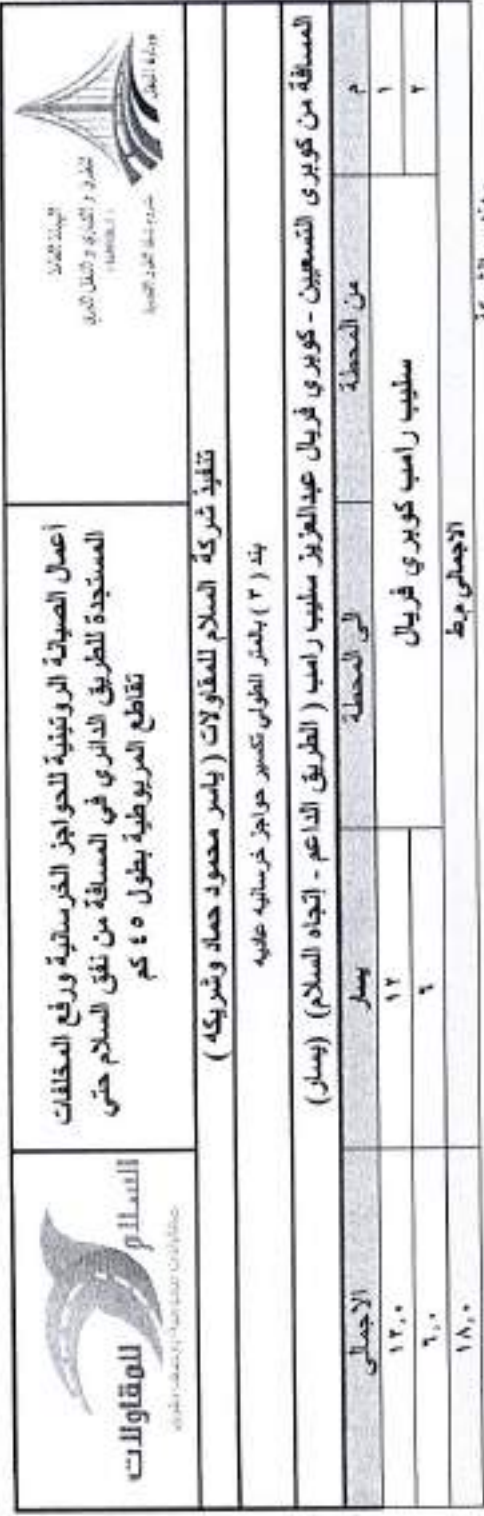 وزارة النقل
الهيئة العامة
للطرق و الكباري و النقل البري
أعمال الصيانة الروتينية للحواجز الخرسانية ورفع المخلفات
المستجدة للطريق الدائري في المسافة من نفق السلام حتي
تقاطع المريوطية بطول ٤٥ كم
السلام
للمقاولات
تنفيذ شركة السلام للمقاولات ( ياسر محمود حماد وشريكه )
بند ( ٣ ) بالمتر الطولي تكسير حواجز خرسانيه عاديه
المسافة من كوبرى التسعين - كوبري فريال عبدالعزيز سليب رامب ( الطريق الداعم - إتجاه السلام ) (يسار)
م من المحطة الى المحطة يسار الاجمالى
١ سليب رامب كوبري فريال ١٢ ١٢,٠
٢ ٦ ٦,٠
الاجمالى م.ط ١٨,٠